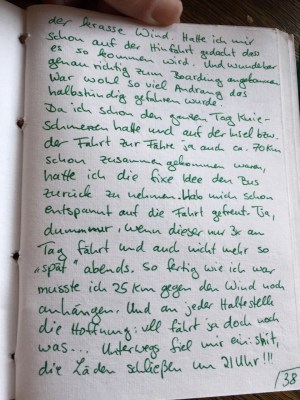 der krasse Wind. Hatte ich mir
schon auf der Hinfahrt gedacht dass
es so kommen wird. Und wunderbar
genau richtig zum Boarding angekommen
War wohl so viel Andrang das
halbstündig gefahren wurde.
Da ich schon den ganzen Tag Knie-
schmerzen hatte und auf der Insel bzw.
der Fahrt zur Fähre ja auch ca. 70km
schon zusammen gekommen waren,
hatte ich die fixe Idee den Bus
zurück zu nehmen. Hab mich schon
entspannt auf die Fahrt gefreut. Tja,
dumm nur, wenn dieser nur 3x am
Tag fährt und auch nicht mehr so
„spät" abends. So fertig wie ich war
musste ich 25 km gegen den Wind noch
anhängen. Und an jeder Haltestelle
die Hoffnung: vll fährt ja doch noch
was... Unterwegs fiel mir ein: shit,
die Läden schließen um 21 Uhr!!!
38